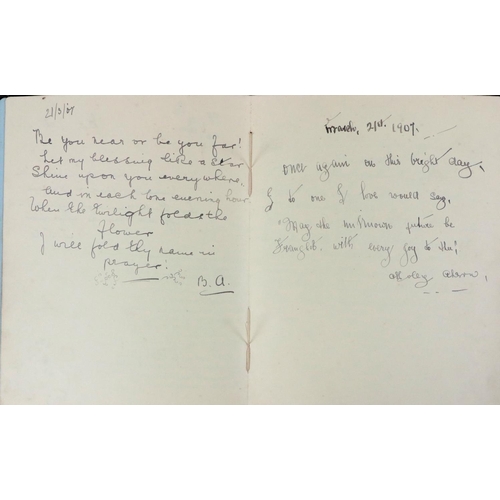 21/3/07
Be you near or be you far!
Let my blessing like a star
Shine upon you everywhere,
And in each lone evening hour
When the twilight folds the
flower
I will fold thy name in
prayer.
B. A.
March, 21st. 1907.
once again on this bright day,
I to one I love would say,
"May the unknown future be
Fraught with every joy to thee!